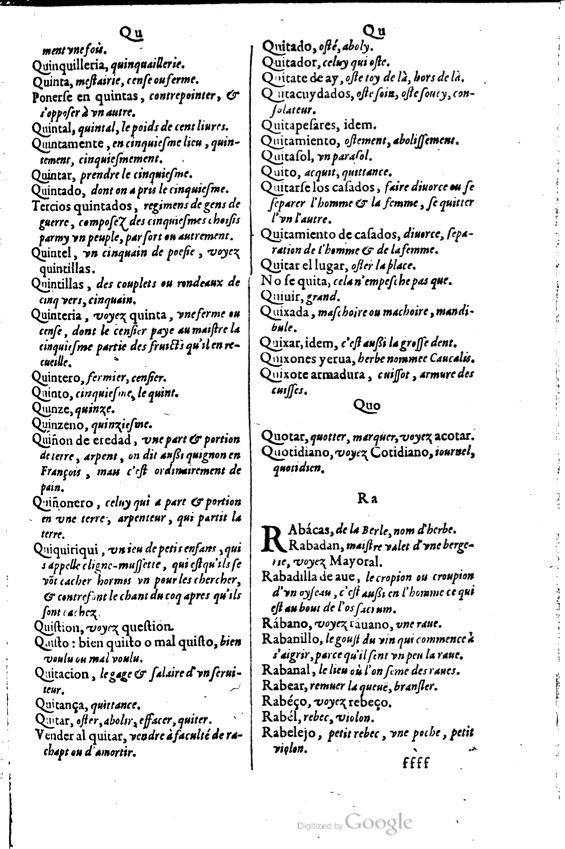 Qu
ment vne fois.
Quinquilleria, quinquaillerie.
Quinta, mestairie, cense ou ferme.
Ponerse en quintas, contrepointer, &
s'opposer à vn autre.
Quintal, quintal, le poids de cent liures.
Quintamente, en cinquiesme lieu, quin-
tement, cinquiesmement.
Quintar, prendre le cinquiesme.
Quintado, dont on a pris le cinquiesme.
Tercios quintados, regimens de gens de
guerre, composez des cinquiesmes choisis
parmy vn peuple, par sort ou autrement.
Quintel, vn cinquain de poesie, voyez
quintillas.
Quintillas, des couplets ou rondeaux de
cinq vers, cinquain.
Quinteria, voyez quinta, vne ferme ou
cense, dont le censier paye au maistre la
cinquiesme partie des fruicts qu'il en re-
cueille.
Quintero, fermier, censier.
Quinto, cinquiesme, le quint.
Quinze, quinze.
Quinzeno, quinziesme.
Quiñon de eredad, vne part & portion
de terre, arpent, on dit aussi quignon en
François, mais c'est ordinairement de
pain.
Quiñonero, celuy qui a part & portion
en vne terre, arpenteur, qui partit la
terre.
Quiquiriqui, vn ieu de petis enfans, qui
s'appelle cligne-mussette, qui est qu'ils se
võt cacher hormis vn pour les chercher,
& contrefont le chant du coq apres qu'ils
sont cachez.
Quistion, voyez question.
Quisto: bien quisto o mal quisto, bien
voulu ou mal voulu.
Quitacion, le gage & salaire d'vn serui-
teur.
Quitança, quittance.
Quitar, oster, abolir, effacer, quiter.
Vender al quitar, vendre à faculté de ra-
chapt ou d'amortir.
Qu
Quitado, osté, aboly.
Quitador, celuy qui oste.
Quitate de ay, oste toy de là, hors de là.
Quitacuydados, oste soin, oste soucy, con-
solateur.
Quitapesares, idem.
Quitamiento, ostement, abolissement.
Quitasol, vn parasol.
Quito, acquit, quittance.
Quitarse los casados, faire diuorce ou se
separer l'homme & la femme, se quitter
l'vn l'autre.
Quitamiento de casados, diuorce, sepa-
ration de l'homme & de la femme.
Quitar el lugar, oster la place.
No se quita, cela n'empesche pas que.
Quiuir, grand.
Quixada, maschoire ou machoire, mandi-
bule.
Quixar, idem, c'est aussi la grosse dent.
Quixones yerua, herbe nommee Caucalis.
Quixote armadura, cuissot, armure des
cuisses.
Quo
Quotar, quotter, marquer, voyez acotar.
Quotidiano, voyez Cotidiano, iournel,
quotidien.
Ra
RAbácas, de la Berle, nom d'herbe.
Rabadan, maistre valet d'vne berge-
rie, voyez Mayoral.
Rabadilla de aue, le cropion ou croupion
d'vn oyseau, c'est aussi en l'homme ce qui
est au bout de l'os sacrum.
Rábano, voyez rauano, vne raue.
Rabanillo, le goust du vin qui commence à
s'aigrir, parce qu'il sent vn peu la raue.
Rabanal, le lieu où l'on seme des raues.
Rabear, remuer la queuë, bransler.
Rabéço, voyez rebeço.
Rabél, rebec, violon.
Rabelejo, petit rebec, vne poche, petit
violon.
ffff
Digitized by Google